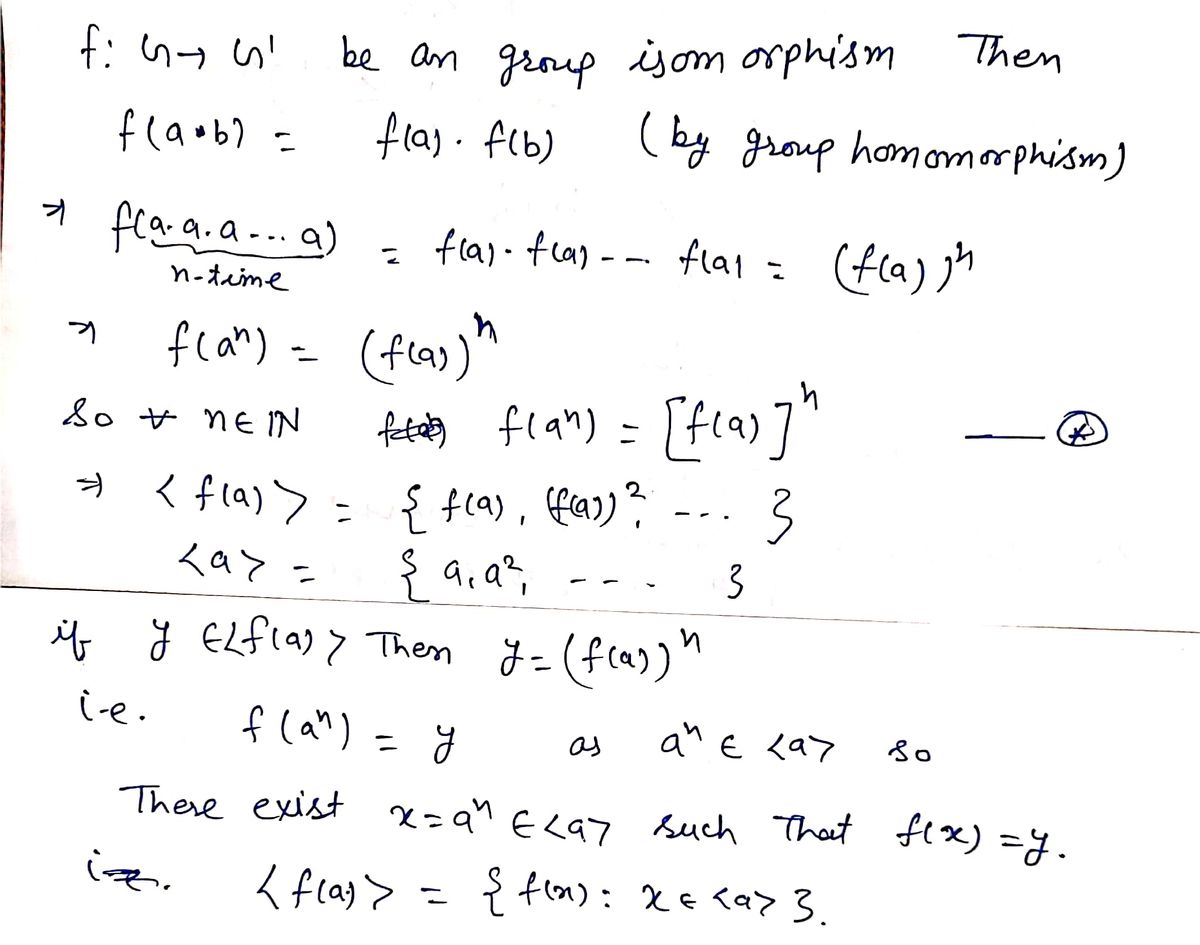 f: G → G' be an group isomorphism Then
f(a•b) = f(a)·f(b) (by group homomorphism)
⇒ f(a·a·a---·a) = f(a)·f(a)-- f(a) = (f(a))ⁿ
n-time
⇒ f(aⁿ) = (f(a))ⁿ
So ∀ n∈ℕ f(aⁿ) = [f(a)]ⁿ —— ⊛
⇒ <f(a)> = { f(a), (f(a))², --- }
<a> = { a, a², --- }
if y ∈<f(a)> Then y=(f(a))ⁿ
i-e. f(aⁿ) = y as aⁿ ∈ <a> so
There exist x=aⁿ ∈<a> such That f(x) =y.
i.e. <f(a)> = { f(x): x ∈ <a> }.